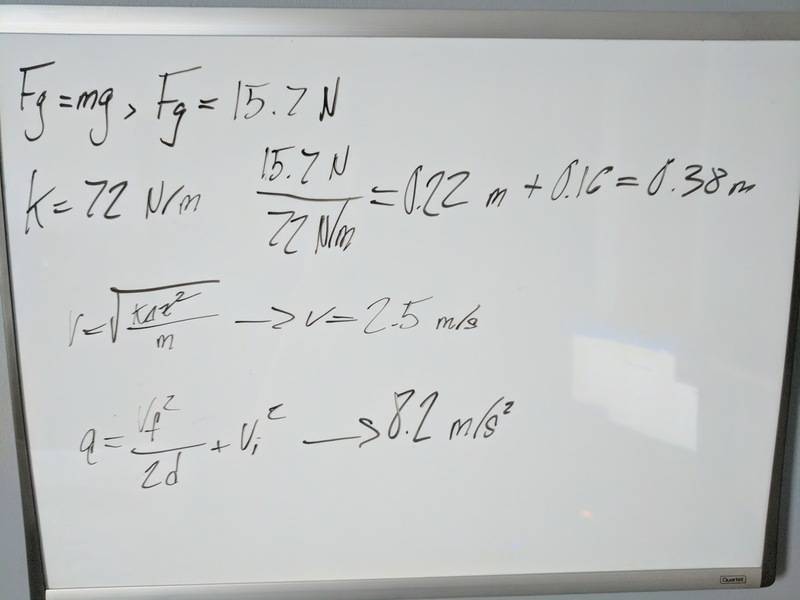 Fg = mg, Fg = 15.7 N
K = 72 N/m 15.7 N / 72 N/m = 0.22 m + 0.16 = 0.38 m
v = √(kΔx² / m) → v = 2.5 m/s
a = Vf² / 2d + Vi² → 8.2 m/s²
Quartet